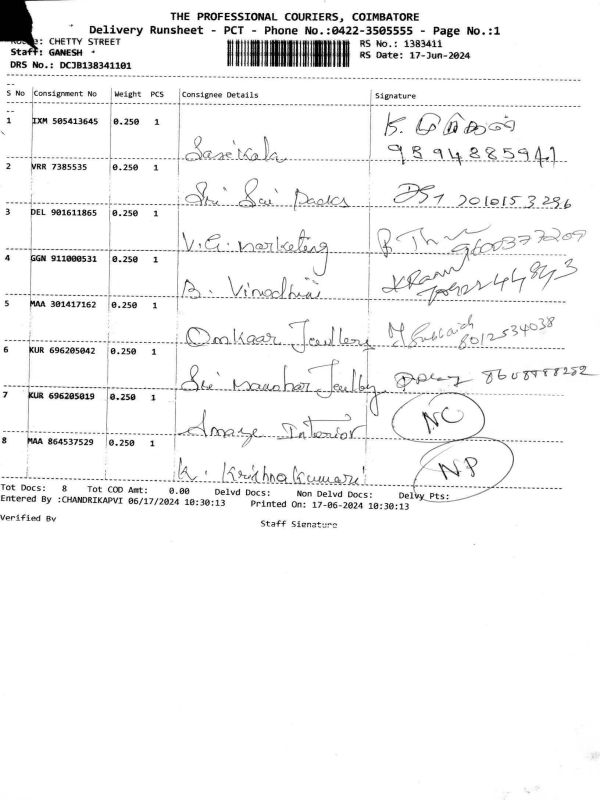 THE PROFESSIONAL COURIERS, COIMBATORE
Delivery Runsheet - PCT - Phone No.:0422-3505555 - Page No.:1
CHETTY STREET
RS No.: 1383411
Staff: GANESH
RS Date: 17-Jun-2024
DRS No.: DCJB138341101
S No Consignment No Weight PCS Consignee Details Signature
1 IXM 505413645 0.250 1
Saseikala
2 VRR 7385535 0.250 1
Sri Sai Packs
3 DEL 901611865 0.250 1
V.G. marketing 9600377209
4 GGN 911000531 0.250 1
B. Vinodhini
5 MAA 301417162 0.250 1
Omkaar Jewllery 8012534038
6 KUR 696205042 0.250 1
Sri Manohar
7 KUR 696205019 0.250 1
Amaze Interior NC
8 MAA 864537529 0.250 1
K. Krishnakumari NP
Tot Docs: 8 Tot COD Amt: 0.00 Delvd Docs: Non Delvd Docs: Delvy Pts:
Entered By :CHANDRIKAPVI 06/17/2024 10:30:13 Printed On: 17-06-2024 10:30:13
Verified By Staff Signature